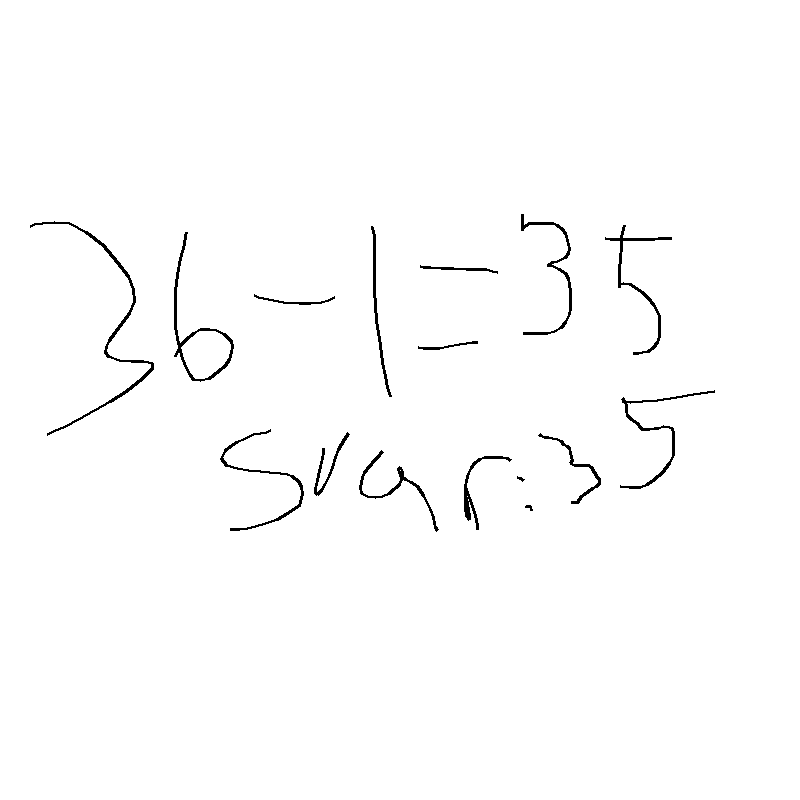 36-1=35
Svar:35